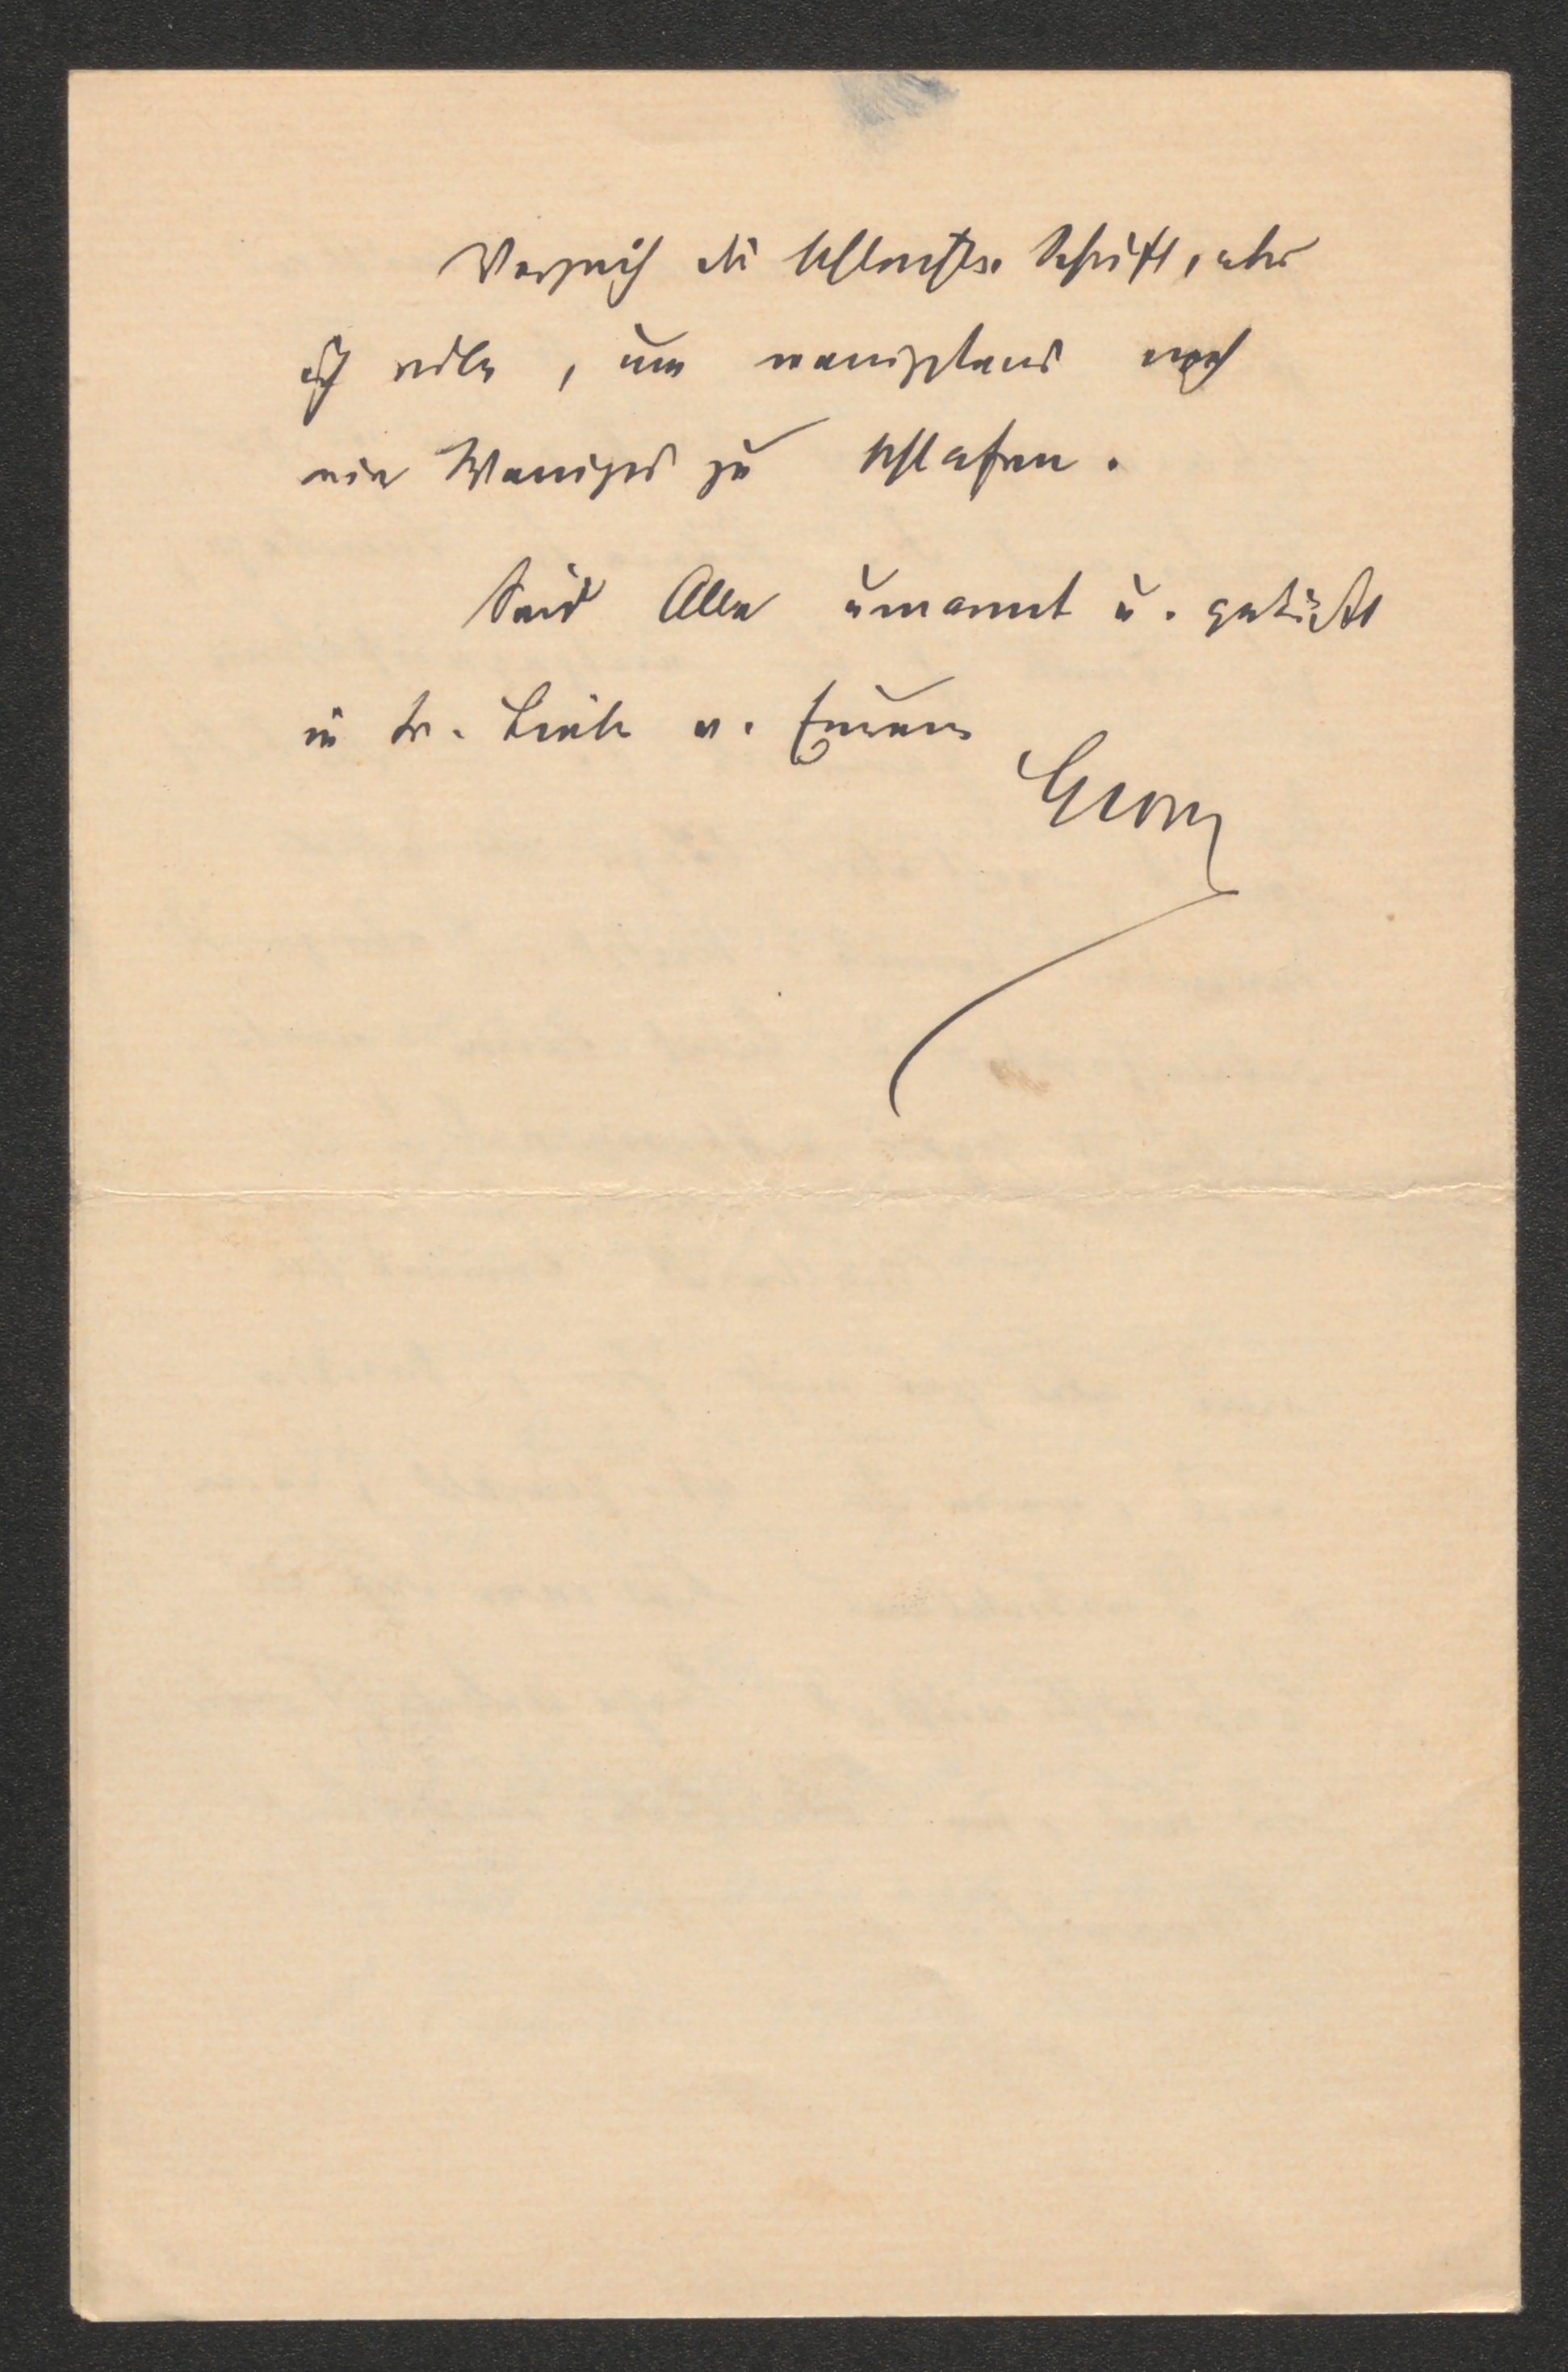 Verzeih die schlechte Schrift, aber
ich eile, um wenigstens noch
ein Weniges zu schlafen.
Seid Alle umarmt u. geküßt
in tr. Liebe v. Eurem
Georg